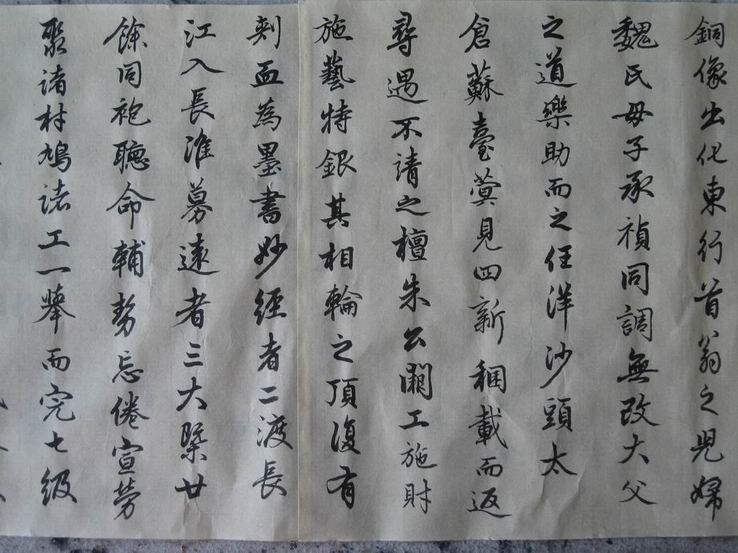 銅像出化東行首翁之児婦
魏氏母子承禎同調無改大父
之道樂助而之任洋沙頭太
倉蘇臺蓂見四新稇載而返
尋遇不請之檀朱公閙工施財
施藝特銀其相輪之頂復有
刺血為墨書妙經者二渡長
江入長淮募遠者三大槩廿
餘同袍聽命輔勢忘倦宣勞
聚諸村鳩諸工一舉而完七級